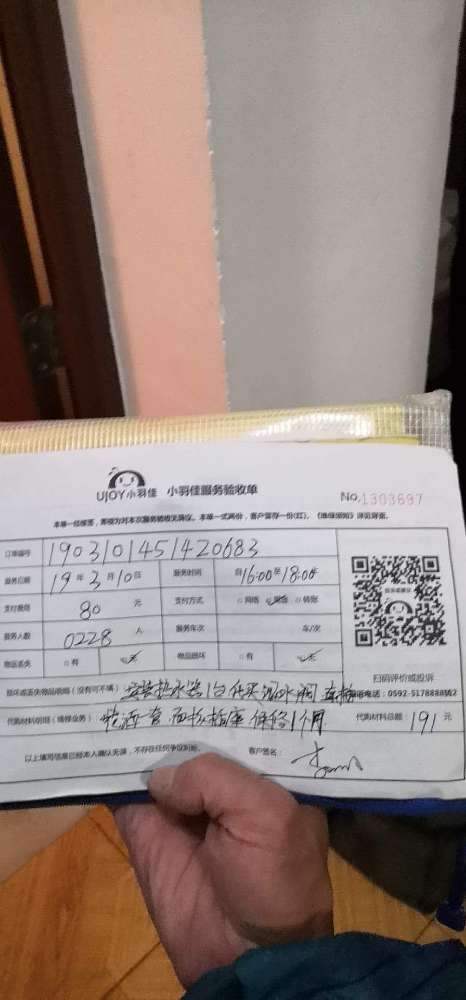 UJOY小羽佳 小羽佳服务验收单
No.1303697
本单一经签签，即视为对本次服务验收无异议。本单一式两份，客户留存一份(红)。《维保须知》详见背面。
订单编号 1903101451420683
服务日期 19年3月10日 服务时间 自16:00至18:00
支付费用 80 元 支付方式 网络 现金 转账
服务人数 0228 人 服务车次 车/次
物品丢失 有 无 物品损坏 有 无
扫码评价或投诉
损坏或丢失物品明细（没有可不填） 安装热水器1台 代买 泄水阀
电话：0592-5178888转2
代购材料明细（维修业务） 一套 面板插座 保修1个月 代购材料总额 191 元
以上填写信息已经本人确认无误，不存在任何争议纠纷。 客户签名：